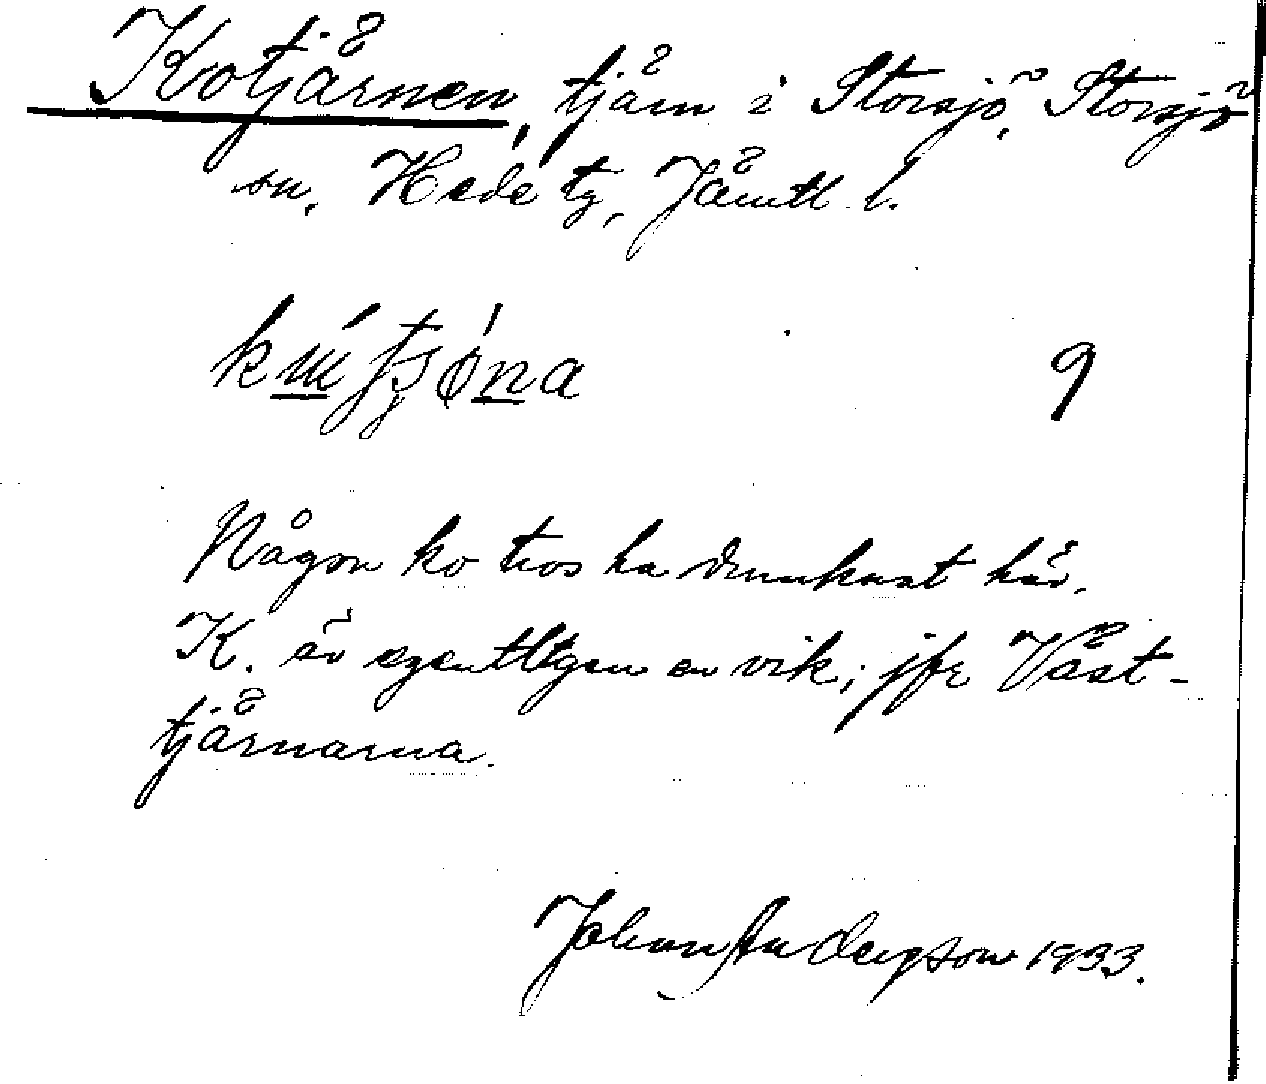 Kotjärnen, tjärn i Storsjö, Storsjö
sn, Hede tg, Jämtl. l.
9
Någon ko tros ha drunknat här.
K. är egentligen en vik; jfr Väst-
tjärnarna.
Johan Anderson 1933.